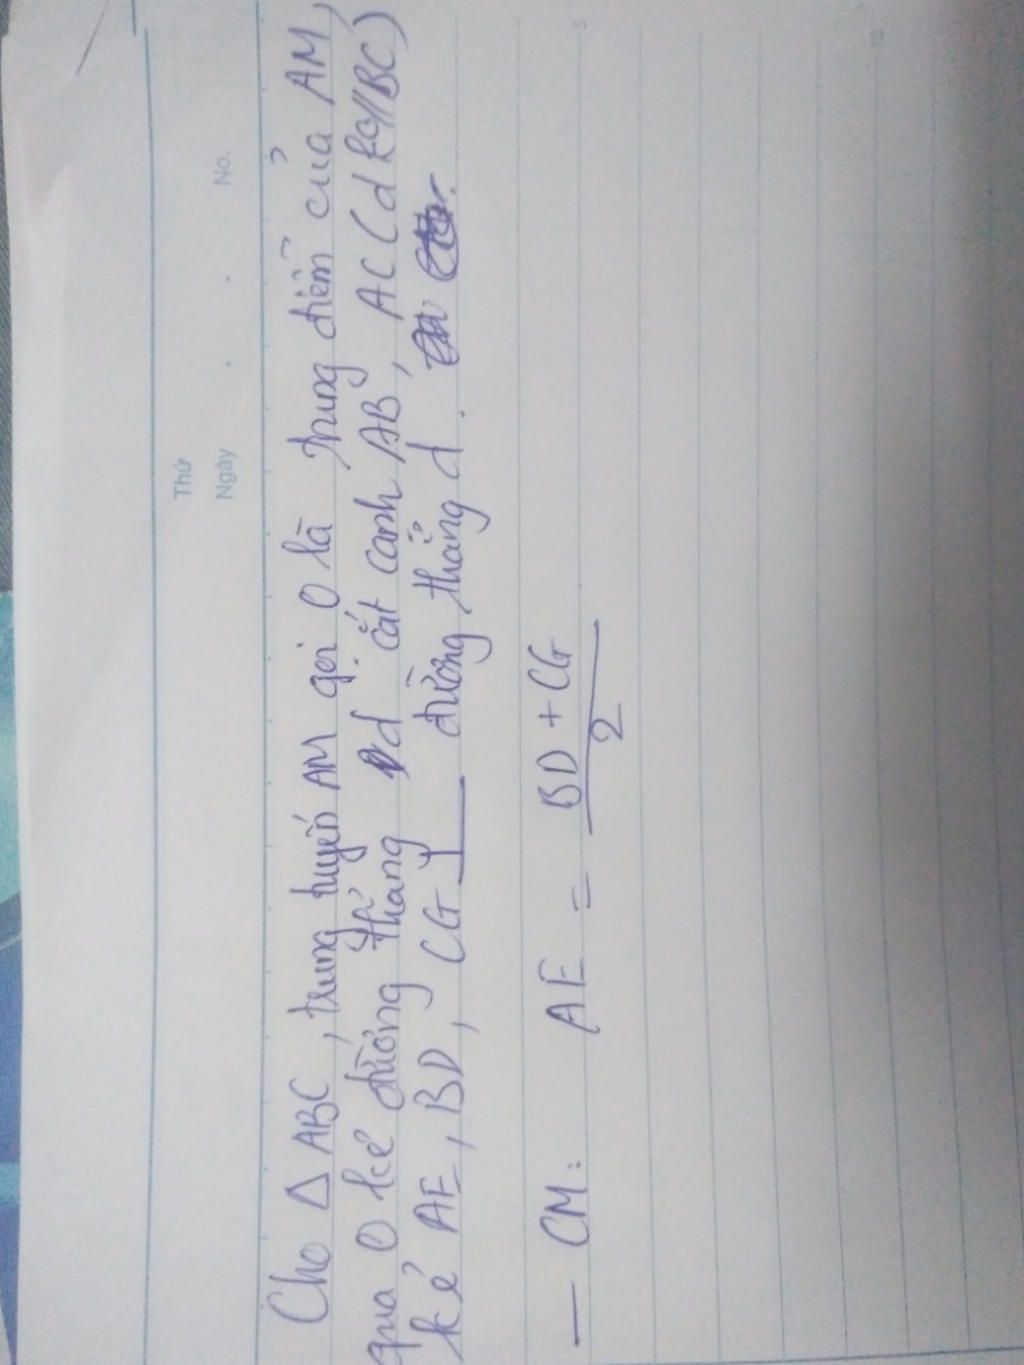 Thứ
Ngày . . No.
Cho Δ ABC, trung tuyến AM gọi O là trung điểm của AM,
qua O kẻ đường thẳng d cắt cạnh AB, AC (d ko//BC)
kẻ AE, BD, CG ⊥ đường thẳng d.
— CM: AE = BD + CG
2